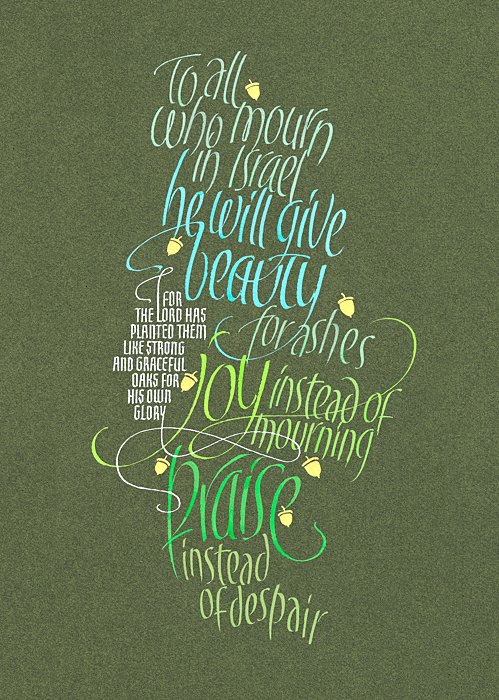 To all
who mourn
in Israel
he will give
beauty
for ashes
joy instead of
mourning
praise
instead
of despair
FOR
THE LORD HAS
PLANTED THEM
LIKE STRONG
AND GRACEFUL
OAKS FOR
HIS OWN
GLORY